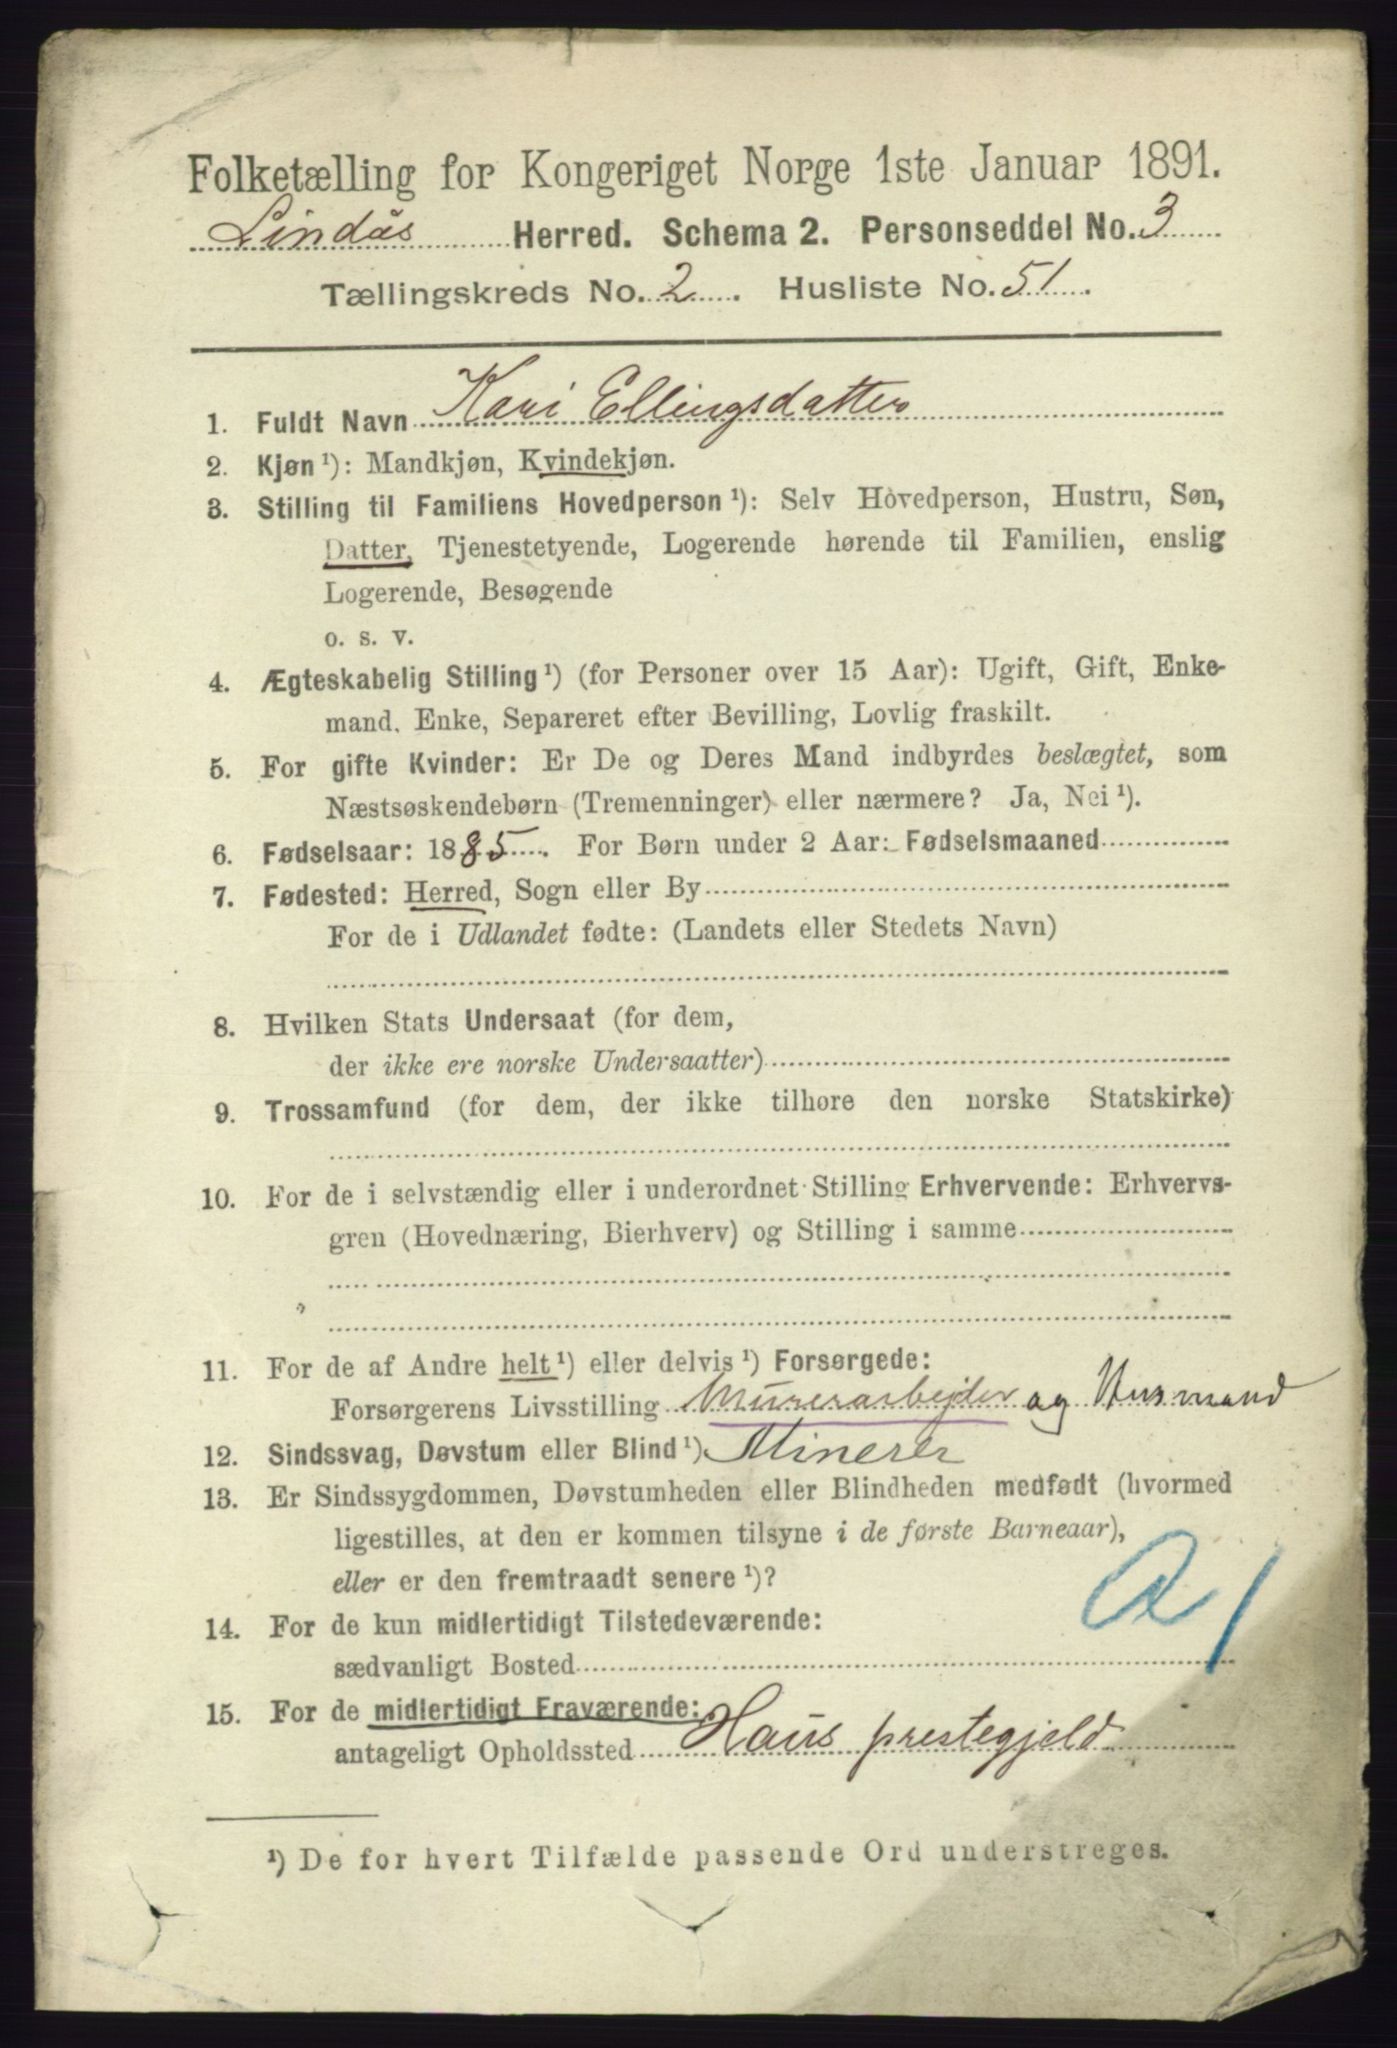 Folketælling for Kongeriget Norge 1ste Januar 1891.
Lindås Herred. Schema 2. Personseddel No. 3
Tællingskreds No. 2. Husliste No. 51.
1. Fuldt Navn Kari Ellingsdatter
2. Kjøn ¹): Mandkjøn, Kvindekjøn.
3. Stilling til Familiens Hovedperson ¹): Selv Hovedperson, Hustru, Søn,
Datter, Tjenestetyende, Logerende hørende til Familien, enslig
Logerende, Besøgende
o. s. v.
4. Ægteskabelig Stilling ¹) (for Personer over 15 Aar): Ugift, Gift, Enke-
mand, Enke, Separeret efter Bevilling, Lovlig fraskilt.
5. For gifte Kvinder: Er De og Deres Mand indbyrdes beslægtet, som
Næstsøskendebørn (Tremenninger) eller nærmere? Ja, Nei ¹).
6. Fødselsaar: 1885. For Børn under 2 Aar: Fødselsmaaned
7. Fødested: Herred, Sogn eller By
For de i Udlandet fødte: (Landets eller Stedets Navn)
8. Hvilken Stats Undersaat (for dem,
der ikke ere norske Undersaatter)
9. Trossamfund (for dem, der ikke tilhøre den norske Statskirke)
10. For de i selvstændig eller i underordnet Stilling Erhvervende: Erhvervs-
gren (Hovednæring, Bierhverv) og Stilling i samme
11. For de af Andre helt ¹) eller delvis ¹) Forsørgede:
Forsørgerens Livsstilling Murerarbejder og Husmand
12. Sindssvag, Døvstum eller Blind ¹) Minerer
13. Er Sindssygdommen, Døvstumheden eller Blindheden medfødt (hvormed
ligestilles, at den er kommen tilsyne i de første Barneaar),
eller er den fremtraadt senere ¹)?
14. For de kun midlertidigt Tilstedeværende:
sædvanligt Bosted
15. For de midlertidigt Fraværende:
antageligt Opholdssted Haus prestegjeld
¹) De for hvert Tilfælde passende Ord understreges.